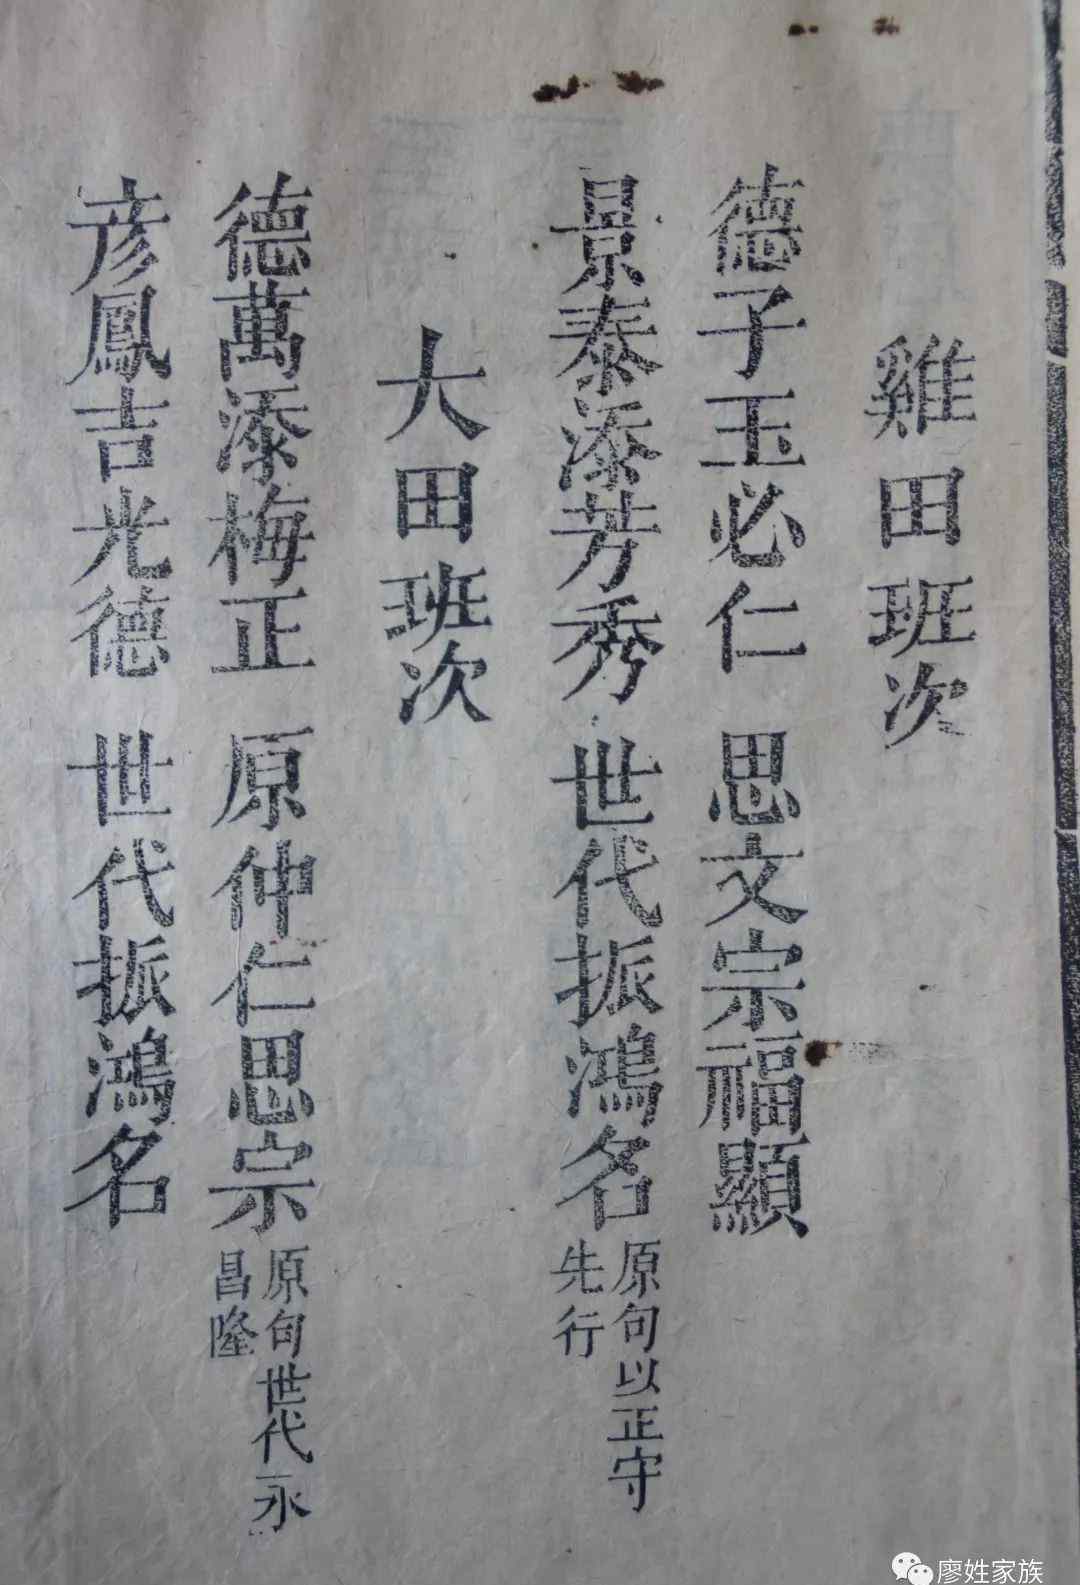 雞田班次
德子玉必仁 思文宗福顯
景泰添芳秀 世代振鴻名 原句以正守先行
大田班次
德萬添梅正 原仲仁思宗 原句世代永昌隆
彦鳳吉光德 世代振鴻名
廖姓家族